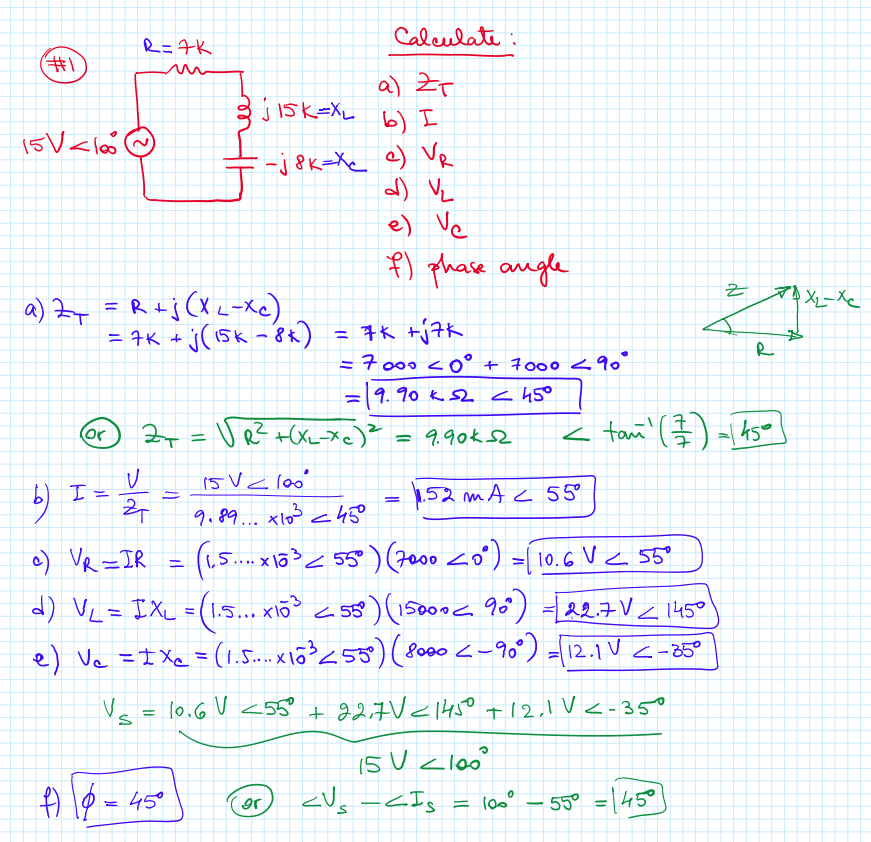 #1
R = 7K
15V < 100°
j 15K = XL
-j 8K = XC
Calculate :
a) ZT
b) I
c) VR
d) VL
e) VC
f) phase angle
a) ZT = R + j(XL - XC)
= 7K + j(15K - 8K) = 7K + j7K
= 7000 < 0° + 7000 < 90°
= 9.90 KΩ < 45°
Z
XL - XC
R
or ZT = √R² + (XL - XC)² = 9.90KΩ < tan⁻¹(7/7) = 45°
b) I = V/ZT = 15V < 100° / 9.89... x10³ < 45° = 1.52 mA < 55°
c) VR = IR = (1.5.... x10⁻³ < 55°)(7000 < 0°) = 10.6 V < 55°
d) VL = IXL = (1.5... x10⁻³ < 55°)(15000 < 90°) = 22.7V < 145°
e) VC = IXC = (1.5.... x10⁻³ < 55°)(8000 < -90°) = 12.1V < -35°
VS = 10.6V < 55° + 22.7V < 145° + 12.1V < -35°
15V < 100°
f) ϕ = 45° or < VS - < IS = 100° - 55° = 45°